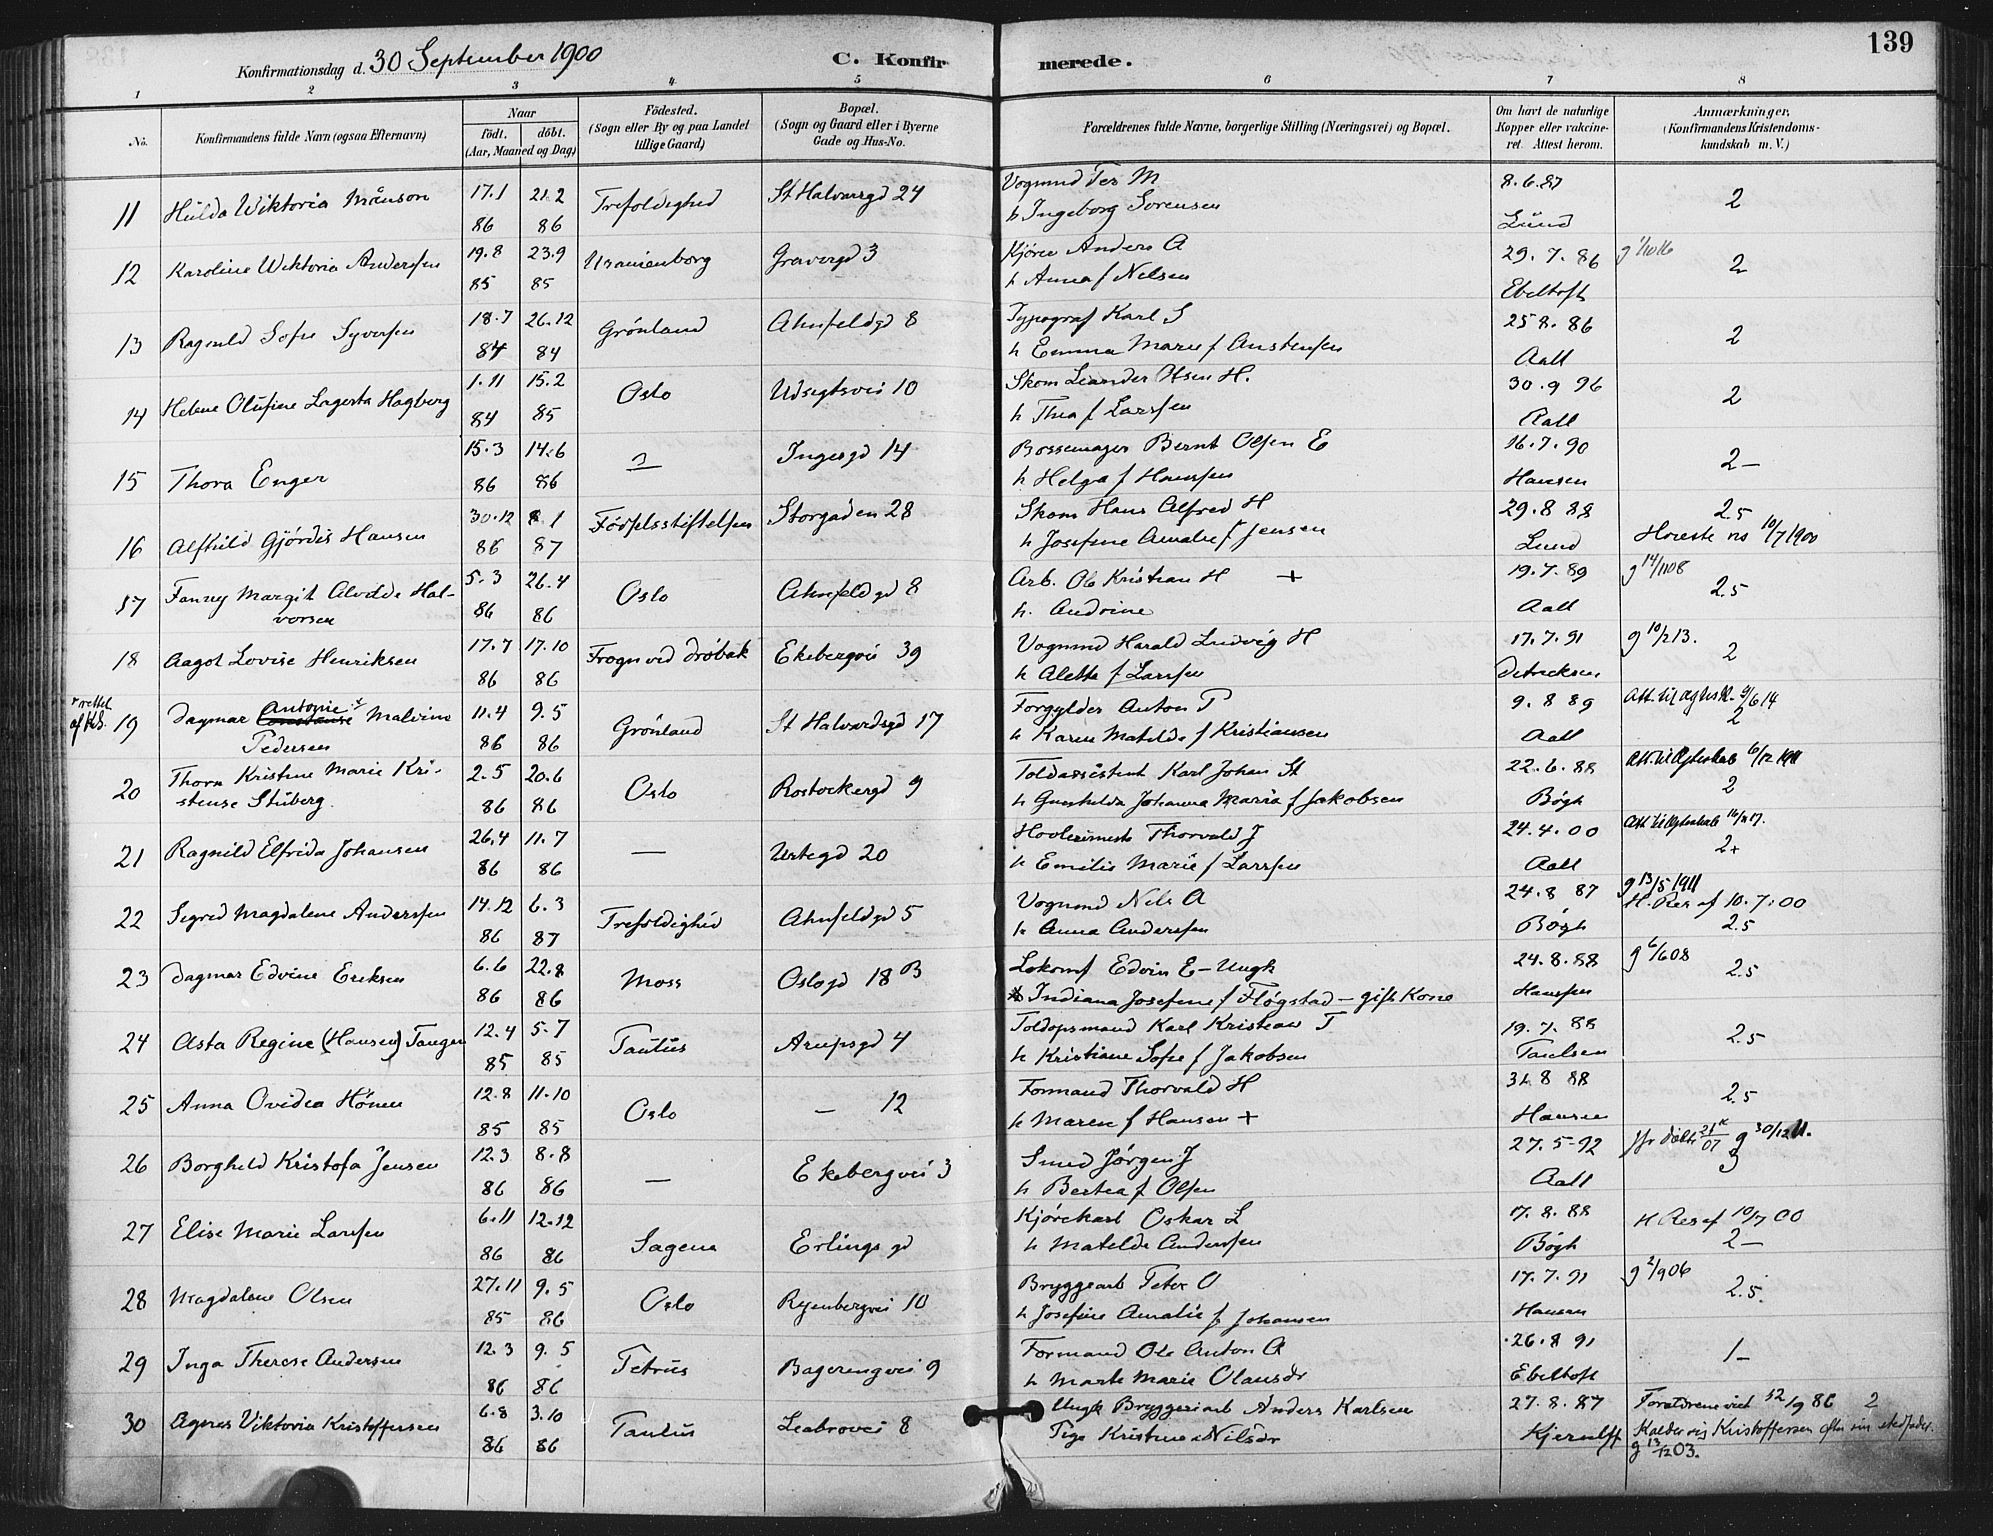 Konfirmationsdag d. 30 September 1900 C. Konfirmerede. 139
1 2 3 4 5 6 7 8
No. Konfirmandens fulde Navn (ogsaa Efternavn) Naar födt. döbt. (Aar, Maaned og Dag) Födested. (Sogn eller By og paa Landet tillige Gaard) Bopæl. (Sogn og Gaard eller i Byerne Gade og Hus-No. Forældrenes fulde Navne, borgerlige Stilling (Næringsvei) og Bopæl. Om havt de naturlige Kopper eller vakcineret. Attest herom. Anmærkninger. (Konfirmandens Kristendomskundskab m. V.)
11 Hulda Wiktoria Månson 17.1 21.2 Trefoldighed St Halvarsgd 24 Vognmd Per M 8.6.87 2
86 86 h Ingeborg Sorensen Lund
12 Karoline Wiktoria Andersen 19.8 23.9 Uranienborg Gravergd 3 Kjörer Anders A 29.7.86 2
85 85 h Anna f Nelsen Ebeltoft
13 Ragnild Sofie Syversen 18.7 26.12 Grönland Ahnfeldgd 8 Typograf Karl S 25 8.86 2
84 84 h Emma Marie f Austensen Aall
14 Helene Olufine Lagerta Hagberg 1.11 15.2 Oslo Udsigtsvei 10 Skom Leander Olsen H. 30.9 96 2
84 85 h Thea f Larssen Aall
15 Thora Enger 15.3 14.6 Ingersgd 14 Bossemager Bernt Olsen E 16.7.90 2-
86 86 h Helga f Hanssen Hansen
16 Alfhild Gjördis Hansen 30.12 8.1 Födselsstiftelsen Storgaden 28 Skom Hans Alfred H 29.8 88 2.5
86 87 h Josefine Amalie f Jensen Lund 10/7 1900
17 Fanny Margit Alvilde Halvorsen 5.3 26.4 Oslo Ahnfeldgd 8 Arb. Ole Kristian H + 19.7.89 g 14/11 08 2.5
86 86 h. Andrine Aall
18 Aagot Lovise Henriksen 17.7 17.10 Frogn ved Dröbak Ekebergvei 39 Vognmd Harald Ludvig H 17.7.91 g 10/2 13. 2
86 86 h Aletta f Larssen Detricksen
* rettet af KD. 19 Dagmar Antonie Malvine Pedersen 11.4 9.5 Grönland St Halvardsgd 17 Forgylder Anton P 9.8 89 Att. til Ægtesk. 9/6 14 2
86 86 h Karen Matilde f Kristiansen Aall
20 Thora Kristine Marie Kristense Stuberg. 2.5 20.6 Oslo Rostockergd 9 Toldassistent Karl Johan St 22.6.88 Att. til Ægteskab 6/12 1911 2
86 86 h Gunhilda Johanna Maria f Jakobsen Bögh
21 Ragnild Elfrida Johansen 26.4 11.7 — Urtegd 20 Thorvald J 24.4.00 Att. til Ægteskab 2+
86 86 h Emilie Marie f Larssen Aall
22 Sigrid Magdalene Anderssen 14.12 6.3 Trefoldighed Ahnfeldgd 5 Vognmd Nils A 24.8 87 g 13/5 1911 H. Res af 10.7.00
86 87 h Anna Anderssen Bögh 2.5
23 Dagmar Edvine Eriksen 6.6 22.8 Moss Oslogd 18 B Lokomf Edvin E - Ungk 24.8.88 g 6/6 08 2.5
86 86 Indiana Josefine f Flögstad - gift Kone Hanssen
24 Asta Regine (Hansen) Tangen 12.4 5.7 Paulus Arupsgd 4 Toldopsmand Karl Kristian T 19.7.88 2.5
85 85 h Kristiane Sofie f Jakobsen Paulsen
25 Anna Ovidea Hönen 12.8 11.10 Oslo — 12 Formand Thorvald H 31.8 88 2.5
85 85 h Maren f Hansen + Hansen
26 Borghild Kristofa Jensen 12.3 8.8 — Ekebergvei 3 Smed Jörgen J 27.5-92 g 30/12 11. 3
86 86 h Bertea f Olsen Aall
27 Elise Marie Larssen 6.11 12.12 Sagene Erlings gd Kjörekarl Oskar L 17.8.88 H Res af 10/7 00
86 86 h Matelde Anderssen Bögh 2-
28 Magdalene Olsen 27.11 9.5 Oslo Ryenbergvei 10 Bryggearb Peter O 17.7.91 g 2/9 06 2.5.
85 86 h Josefine Amalie f Johansen Hansen
29 Inga Therese Andersen 12.3 9.5 Petrus Bagerengvei 9 Formand Ole Anton A 26.8 91 1-
86 86 h Marte Marie Olausdr Ebeltoft
30 Agnes Viktoria Kristoffersen 6.8 3.10 Paulus Leabrovei 8 Ungk Bryggeriarb Anders Karlsen 27.8.87 Forældrene viet 12/9 86 2
86 86 Pige Kristine Nilsdr Kjerulff Kalder sig Kristoffersen efter sin stedfader.
g 13/12 03.